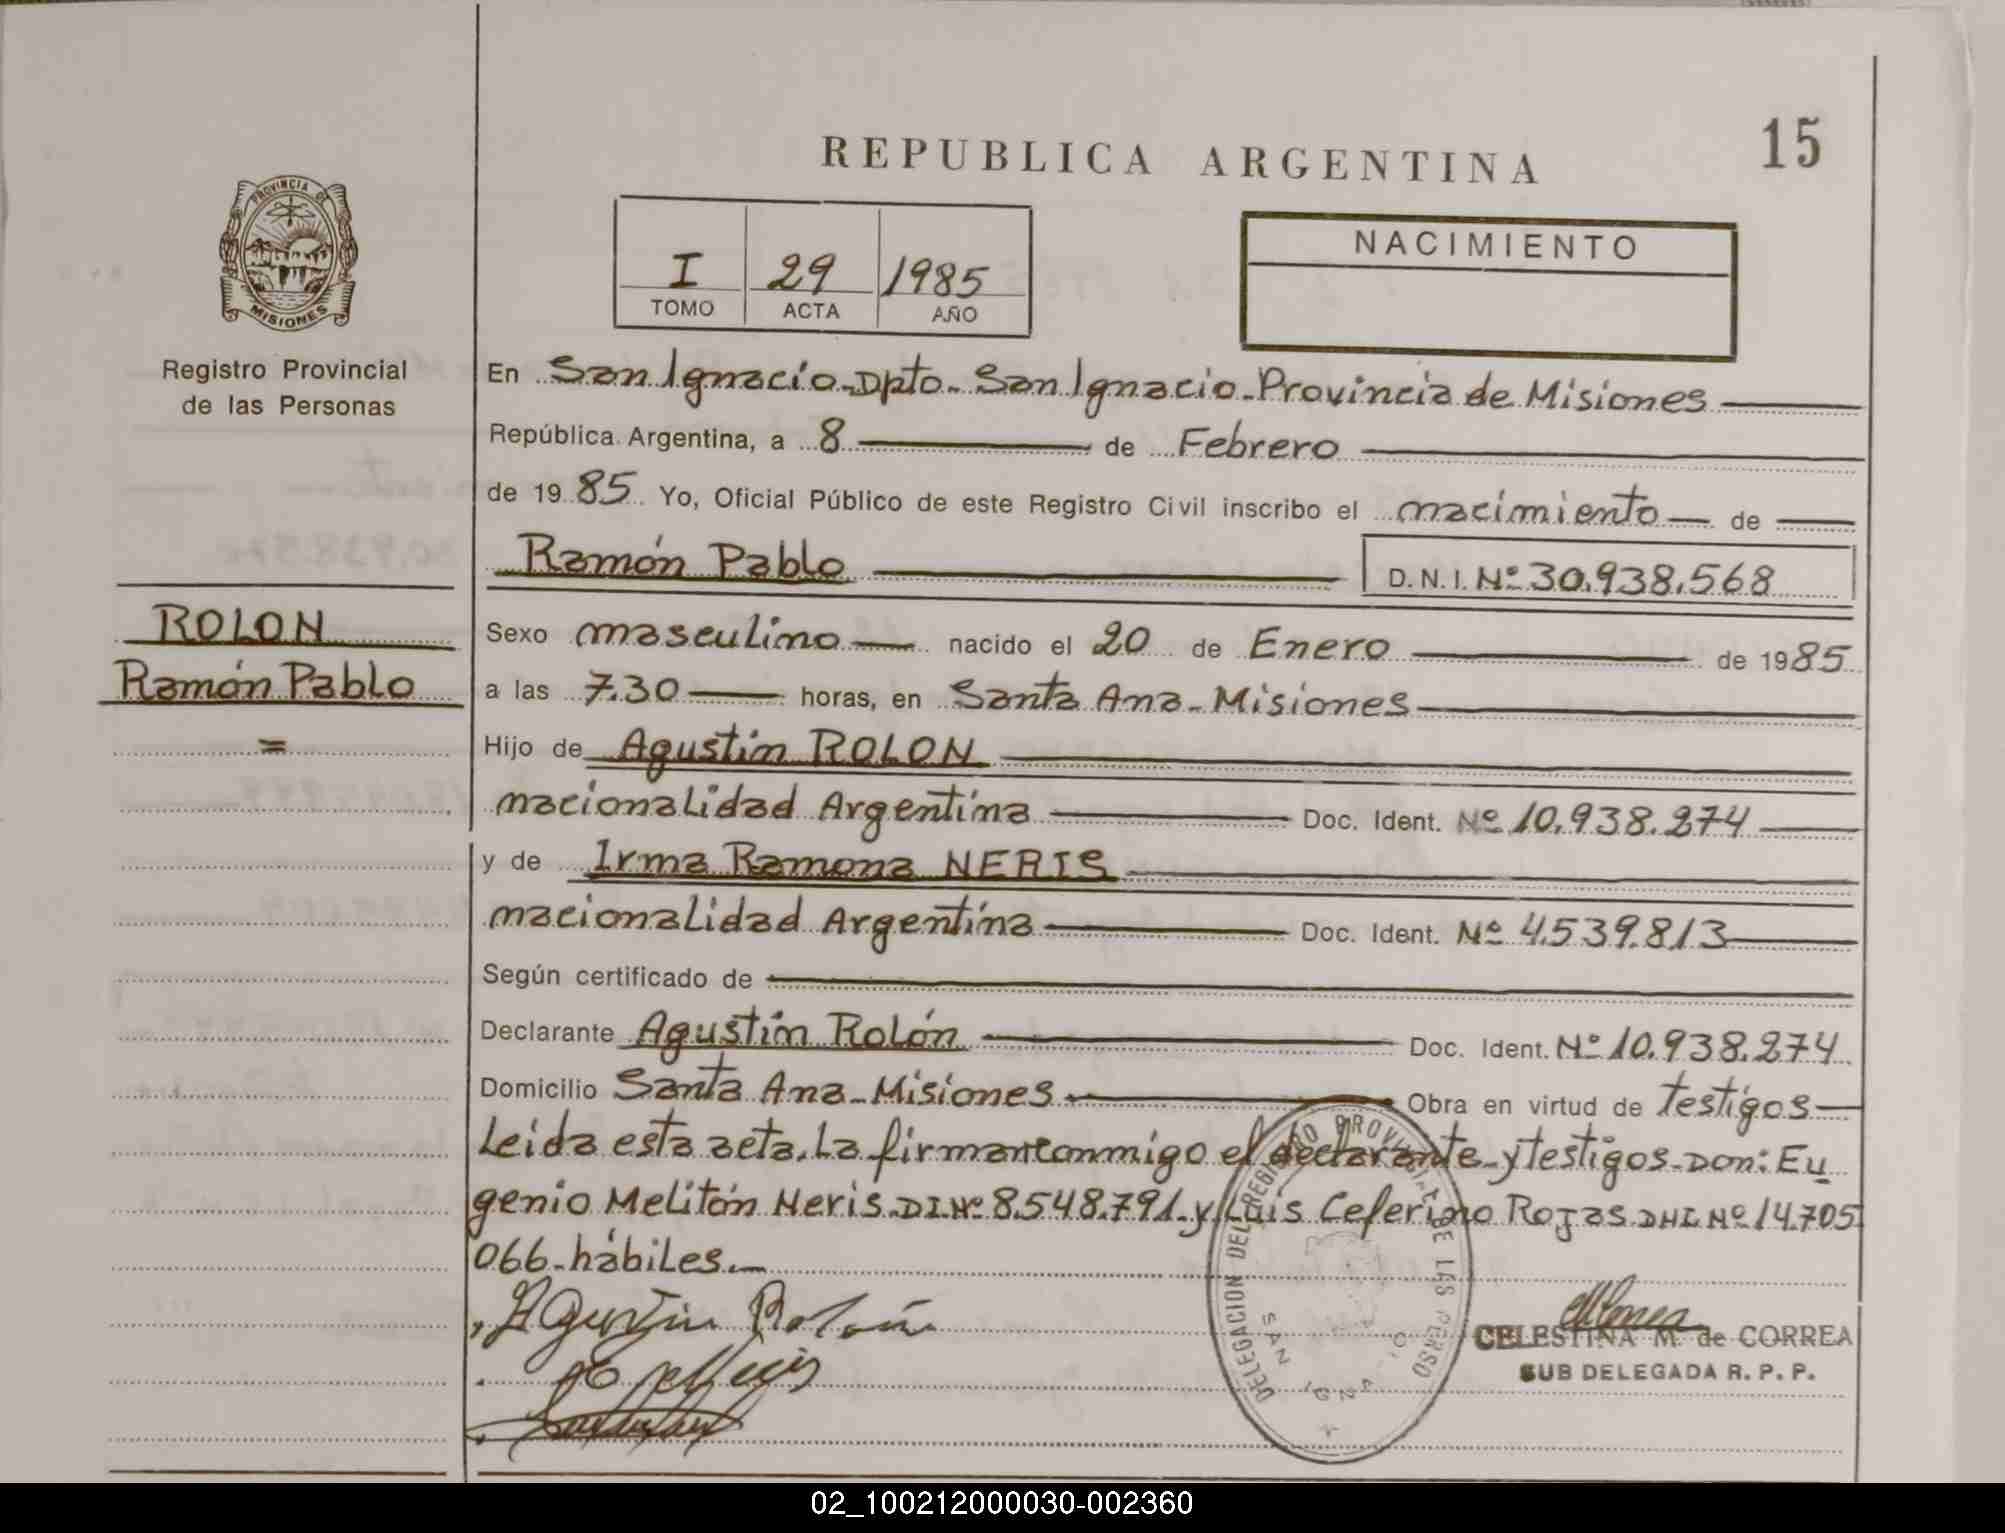 REPUBLICA ARGENTINA
15
PROVINCIA DE
MISIONES
Registro Provincial
de las Personas
I 29 1985
TOMO ACTA AÑO
NACIMIENTO
En San Ignacio - Dpto - San Ignacio - Provincia de Misiones
República Argentina, a 8 de Febrero
de 19 85 Yo, Oficial Público de este Registro Civil inscribo el nacimiento de
Ramón Pablo D.N.I. Nº 30.938.568
ROLON
Ramón Pablo
=
Sexo masculino nacido el 20 de Enero de 1985
a las 7.30 horas, en Santa Ana - Misiones
Hijo de Agustín ROLON
nacionalidad Argentina Doc. Ident. Nº 10.938.274
y de Irma Ramona NERIS
nacionalidad Argentina Doc. Ident. Nº 4.539.813
Según certificado de
Declarante Agustín Rolón Doc. Ident. Nº 10.938.274
Domicilio Santa Ana - Misiones Obra en virtud de testigos
Leida esta acta, la firman conmigo el declarante - y testigos - Don: Eu
genio Melitón Neris - D.I. Nº 8.548.791 - y Luis Ceferino Rojas DNI. Nº 14.705
066 - hábiles. -
Agustin Rolón
DELEGACION DEL REGISTRO PROVINCIAL DE LAS PERSO
SAN IGNACIO
CELESTINA M. de CORREA
SUB DELEGADA R. P. P.
02_100212000030-002360